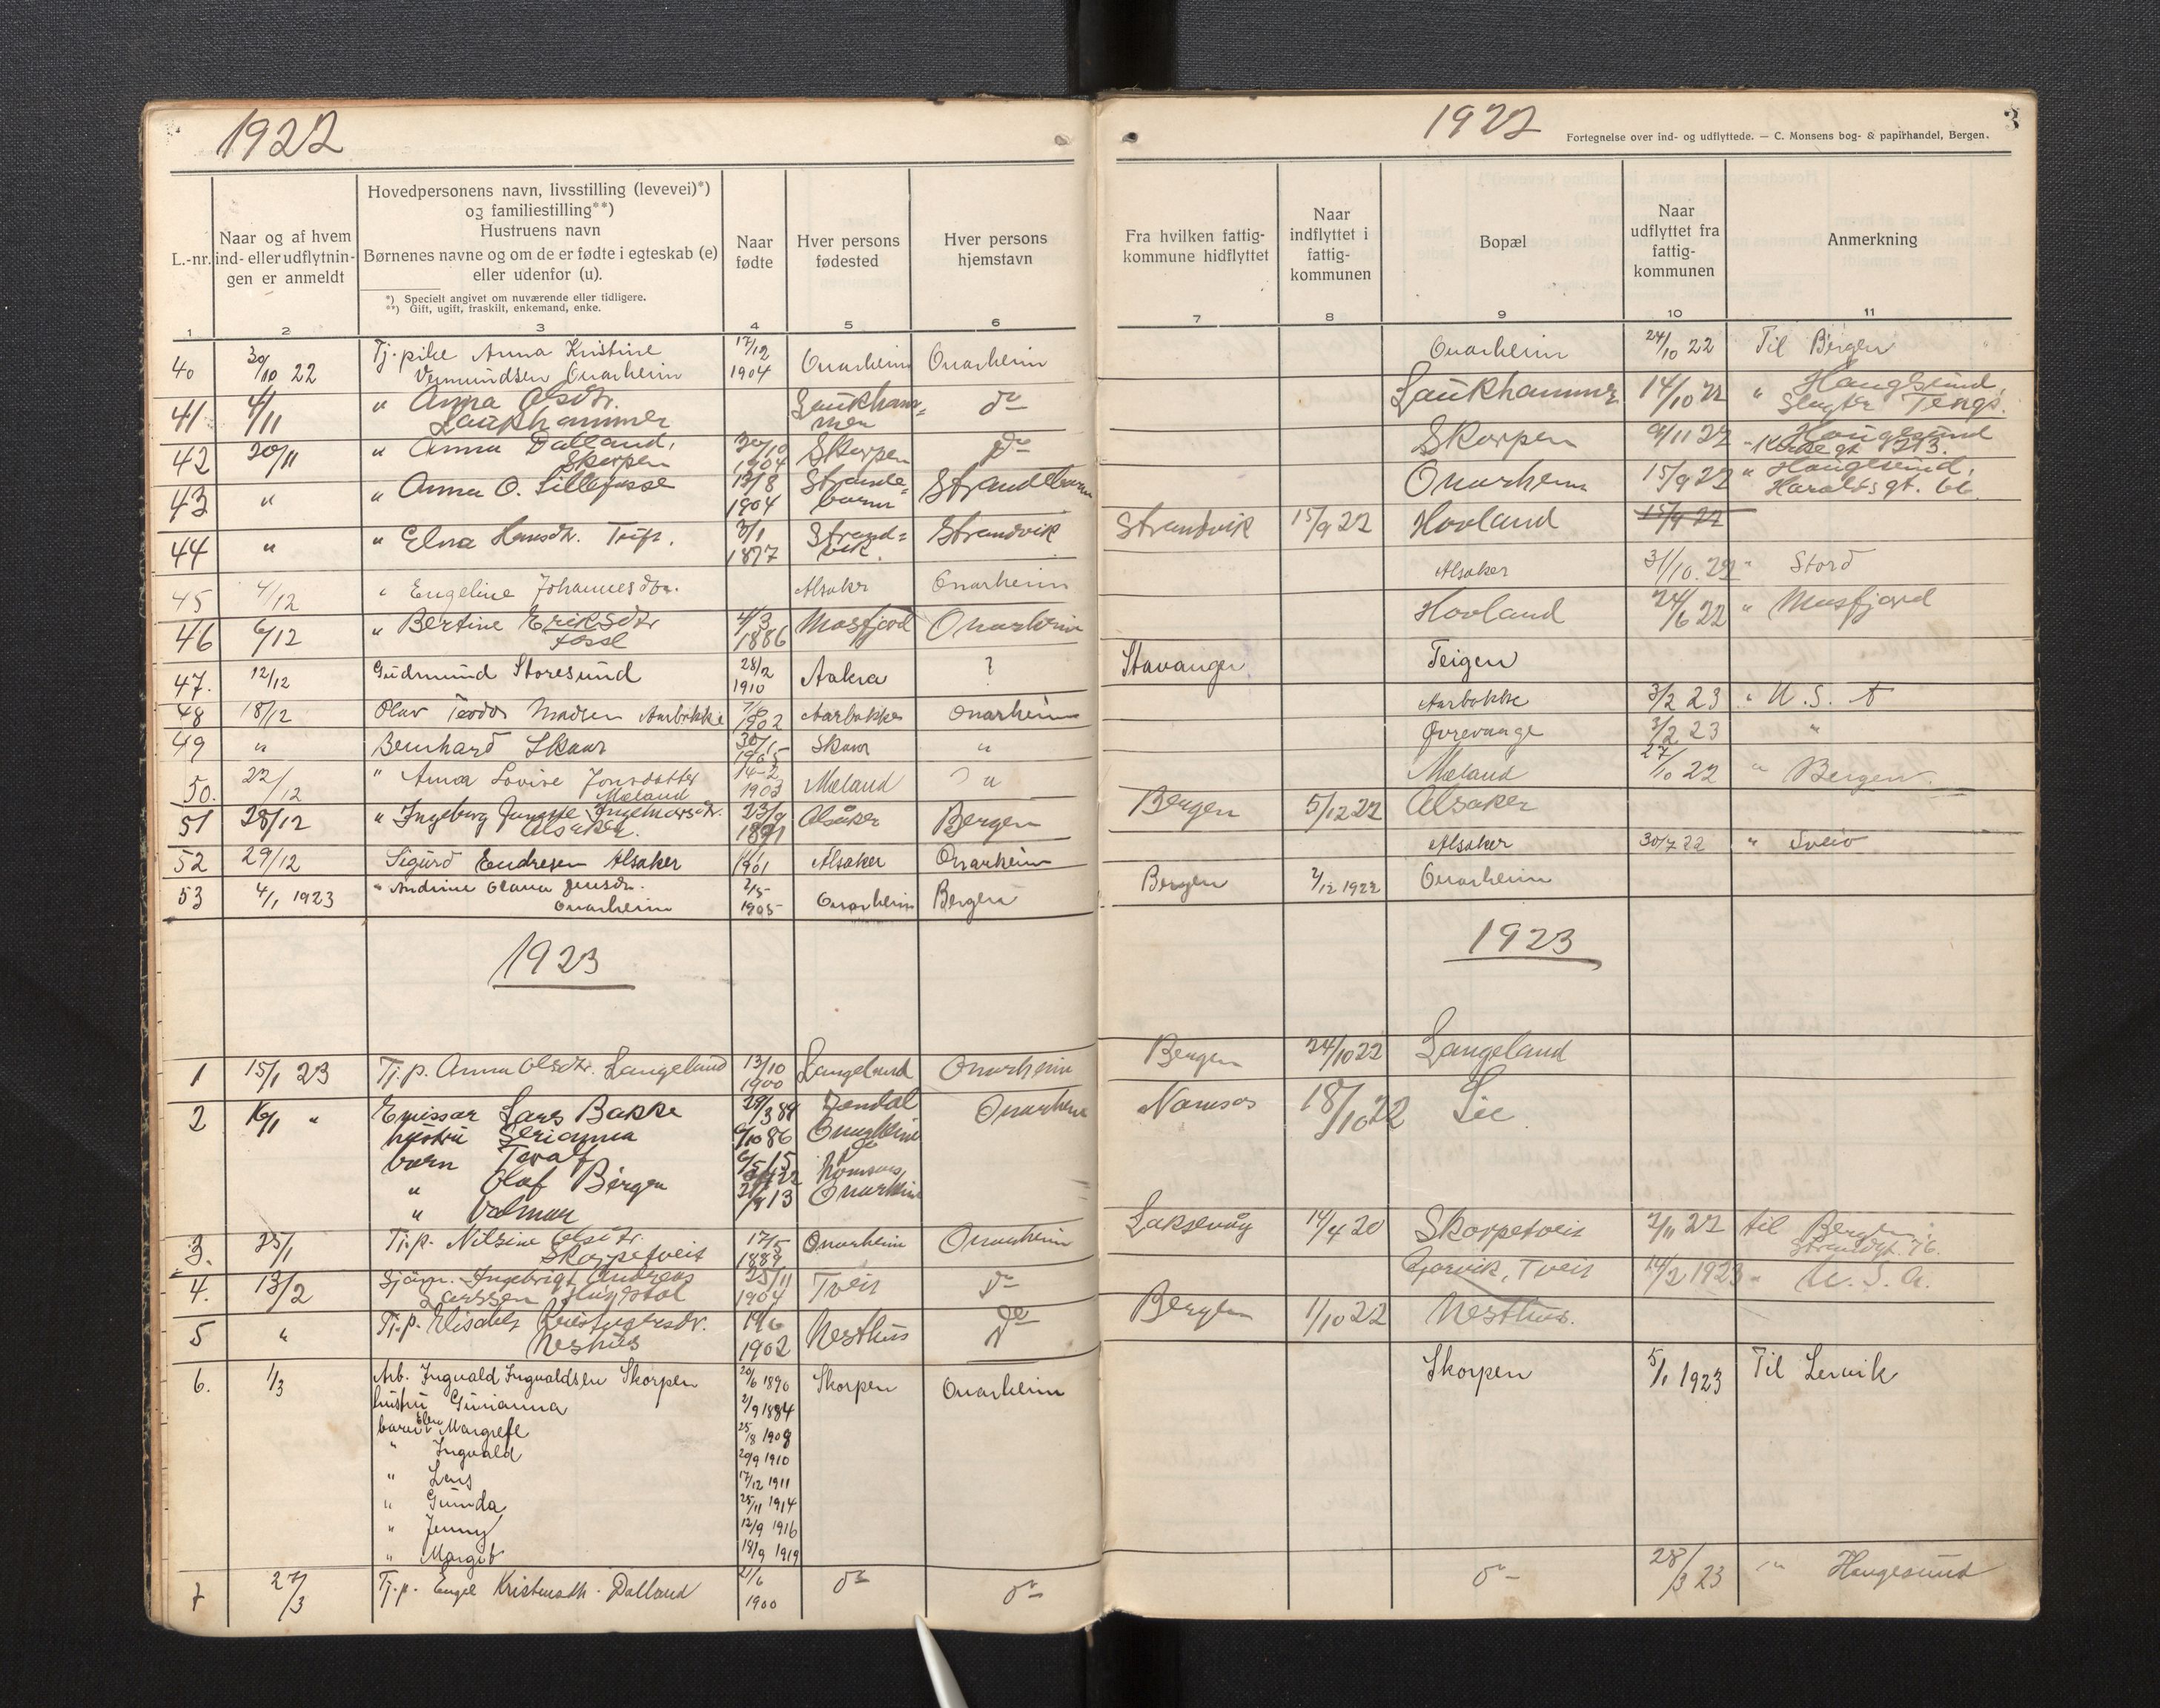 1922
L.-nr.
Naar og af hvem
ind- eller udflytnin-
gen er anmeldt
Hovedpersonens navn, livsstilling (levevei)*)
og familiestilling**)
Hustruens navn
Børnenes navne og om de er fødte i egteskab (e)
eller udenfor (u).
*) Specielt angivet om nuværende eller tidligere.
**) Gift, ugift, fraskilt, enkemand, enke.
Naar
fødte
Hver persons
fødested
Hver persons
hjemstavn
1 2 3 4 5 6
40 30/10 22 Tj. pike Anna Kristine 17/12 Onarheim Onarheim
Vermundsen Onarheim 1904
41 4/11 " Anna Olsdtr. Laukham- do
Laukhammer mer
42 20/11 " Anna Dalland, 30/10 Skorpen do
Skorpen 1904
43 " " Anna O. Lillefosse 13/8 Strande- Strandebarm
1904 barm
44 " " Elna Hansdtr. 3/1 Strand- Strandvik
1877 vik.
45 4/12 " Engeline Johannesdtr. Alsaker Onarheim
46 6/12 " Bertine Eriksdtr 4/3 Masfjord Onarheim
Fosse 1886
47. 12/12 Gudmund Storesund 28/2 Aakra ?
1910
48 18/12 Olav Teodor Madsen Aarbakke 1902 Aarbakke Onarheim
49 " Bernhard Skaar 30/1 Skaar "
1905
50. 22/12 " Anna Lovise Jonsdatter 14-2 Mæland "
Mæland 1903
51 28/12 " Ingeborg Ingemarsdtr. 23/9 Alsåker Bergen
Alsaker. 1891
52 29/12 Sigurd Endresen Alsaker 1901 Alsaker Onarheim
53 4/1 1923 " Andrine Olava Jensdtr. 2/5 Onarheim Bergen
Onarheim 1905
1923
1 15/1 23 Tj.p. Anna Olsdtr. Langeland 13/10 Langeland Onarheim
1900
2 16/1 " Emissær Lars Bakke 29/3 84 Jondal Onarheim
hustru Serianna 6/10 86 Onarheim
barn 6/5 15 do
" Olaf Birger Namsos
" Valmar 21/9 13 Onarheim
3. 25/1 Tj.p. Nilsine Olsdtr. 17/5 Onarheim Onarheim
Skorpetveit 1889
4. 13/2 Sjöm. Ingebrigt Andreas 25/11 Tveit do
Larssen 1904
5 " Tj.p. Elisabet Kristofersdtr. 19/6 Nesthus do
Nesthus 1902
6. 1/3 Arb. Ingvald Ingvaldsen Skorpen 20/6 1890 Skorpen Onarheim
hustru Gurianna 2/9 1884
barn Elen Margrete 25/8 1908
" Ingvald 20/9 1910
" Lars 17/12 1911
" Gunda 25/11 1914
" Jenny 12/9 1916
" Margit 18/9 1919
7 27/3 Tj.p. Engel Kristensdtr. Dalland 21/6 do do
1900
1922
3
Fortegnelse over ind- og udflyttede. — C. Monsens bog- & papirhandel, Bergen.
Fra hvilken fattig-
kommune hidflyttet
Naar
indflyttet i
fattig-
kommunen
Bopæl
Naar
udflyttet fra
fattig-
kommunen
Anmerkning
7 8 9 10 11
Onarheim 24/10 22 Til Bergen
Laukhammer 14/10 22 " Haugesund,
Slagter Tengs.
Skorpen 9/11 22 " Haugesund
Kirkegt 213.
Onarheim 15/9 22 " Haugesund,
Haraldsgt. 66.
Strandvik 15/9 22 Hovland 15/9 22
Alsaker 31/10. 22 " Stord
Hovland 24/6 22 " Masfjord
Stavanger Teigen
Aarbakke 3/2 23 " U.S.A
Øvrevaage 3/2 23 "
Mæland 27/10 22 " Bergen.
Bergen 5/12 22 Alsaker
Alsaker 30/7 22 " Sveio
Bergen 2/12 1922 Onarheim
1923
Bergen 24/10 22 Langeland
Namsos 18/10 22 Lie
Laksevåg 14/4 20 Skorpetveit 7/11 22 til Bergen,
Strandgt. 76.
Gjervik, Tveit 14/2 1923 " U.S.A.
Bergen 1/10 22 Nesthus.
Skorpen 5/1 1923 Til Lervik
do 28/3 23 " Haugesund